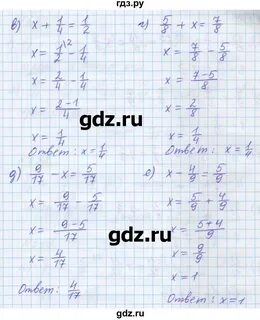 гдз.ру
в) x + 1/4 = 1/2
x = 1/2 \2 - 1/4
x = 2/4 - 1/4
x = 2-1/4
x = 1/4
Ответ: x = 1/4
г) 5/8 + x = 7/8
x = 7/8 - 5/8
x = 7-5/8
x = 2/8
x = 1/4
Ответ: x = 1/4
gdz.ru
д) 9/17 - x = 5/17
x = 9/17 - 5/17
x = 9-5/17
x = 4/17
Ответ: 4/17
е) x - 4/9 = 5/9
x = 5/9 + 4/9
x = 5+4/9
x = 9/9
x = 1
Ответ: x = 1
gdz.ru
gdz.ru
gdz.ru